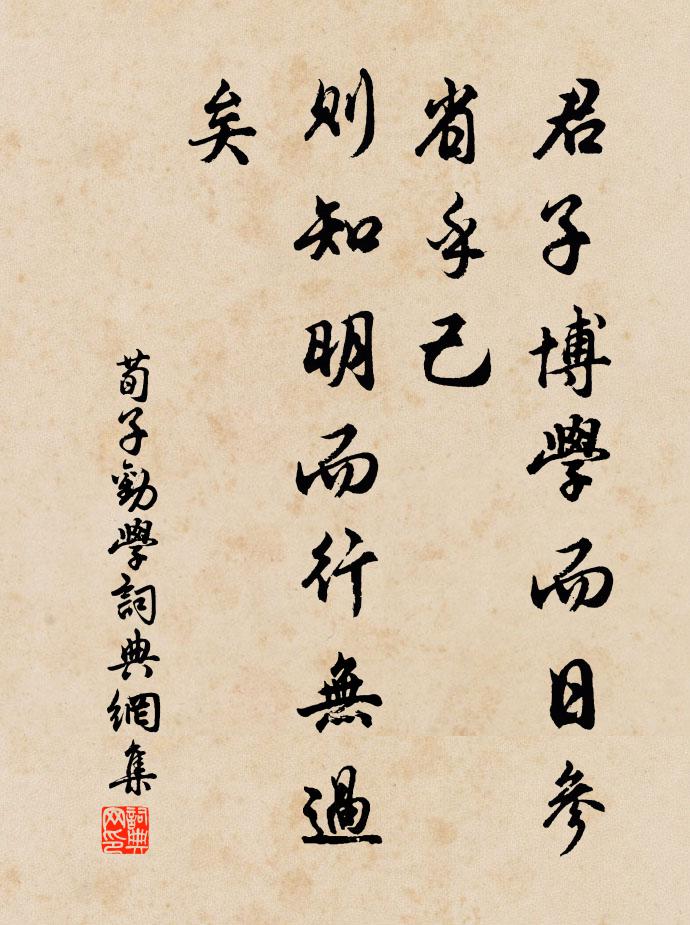 君子博學而日參
省乎己
則知明而行無過
矣
荀子勸學詞典網集
詞典网印